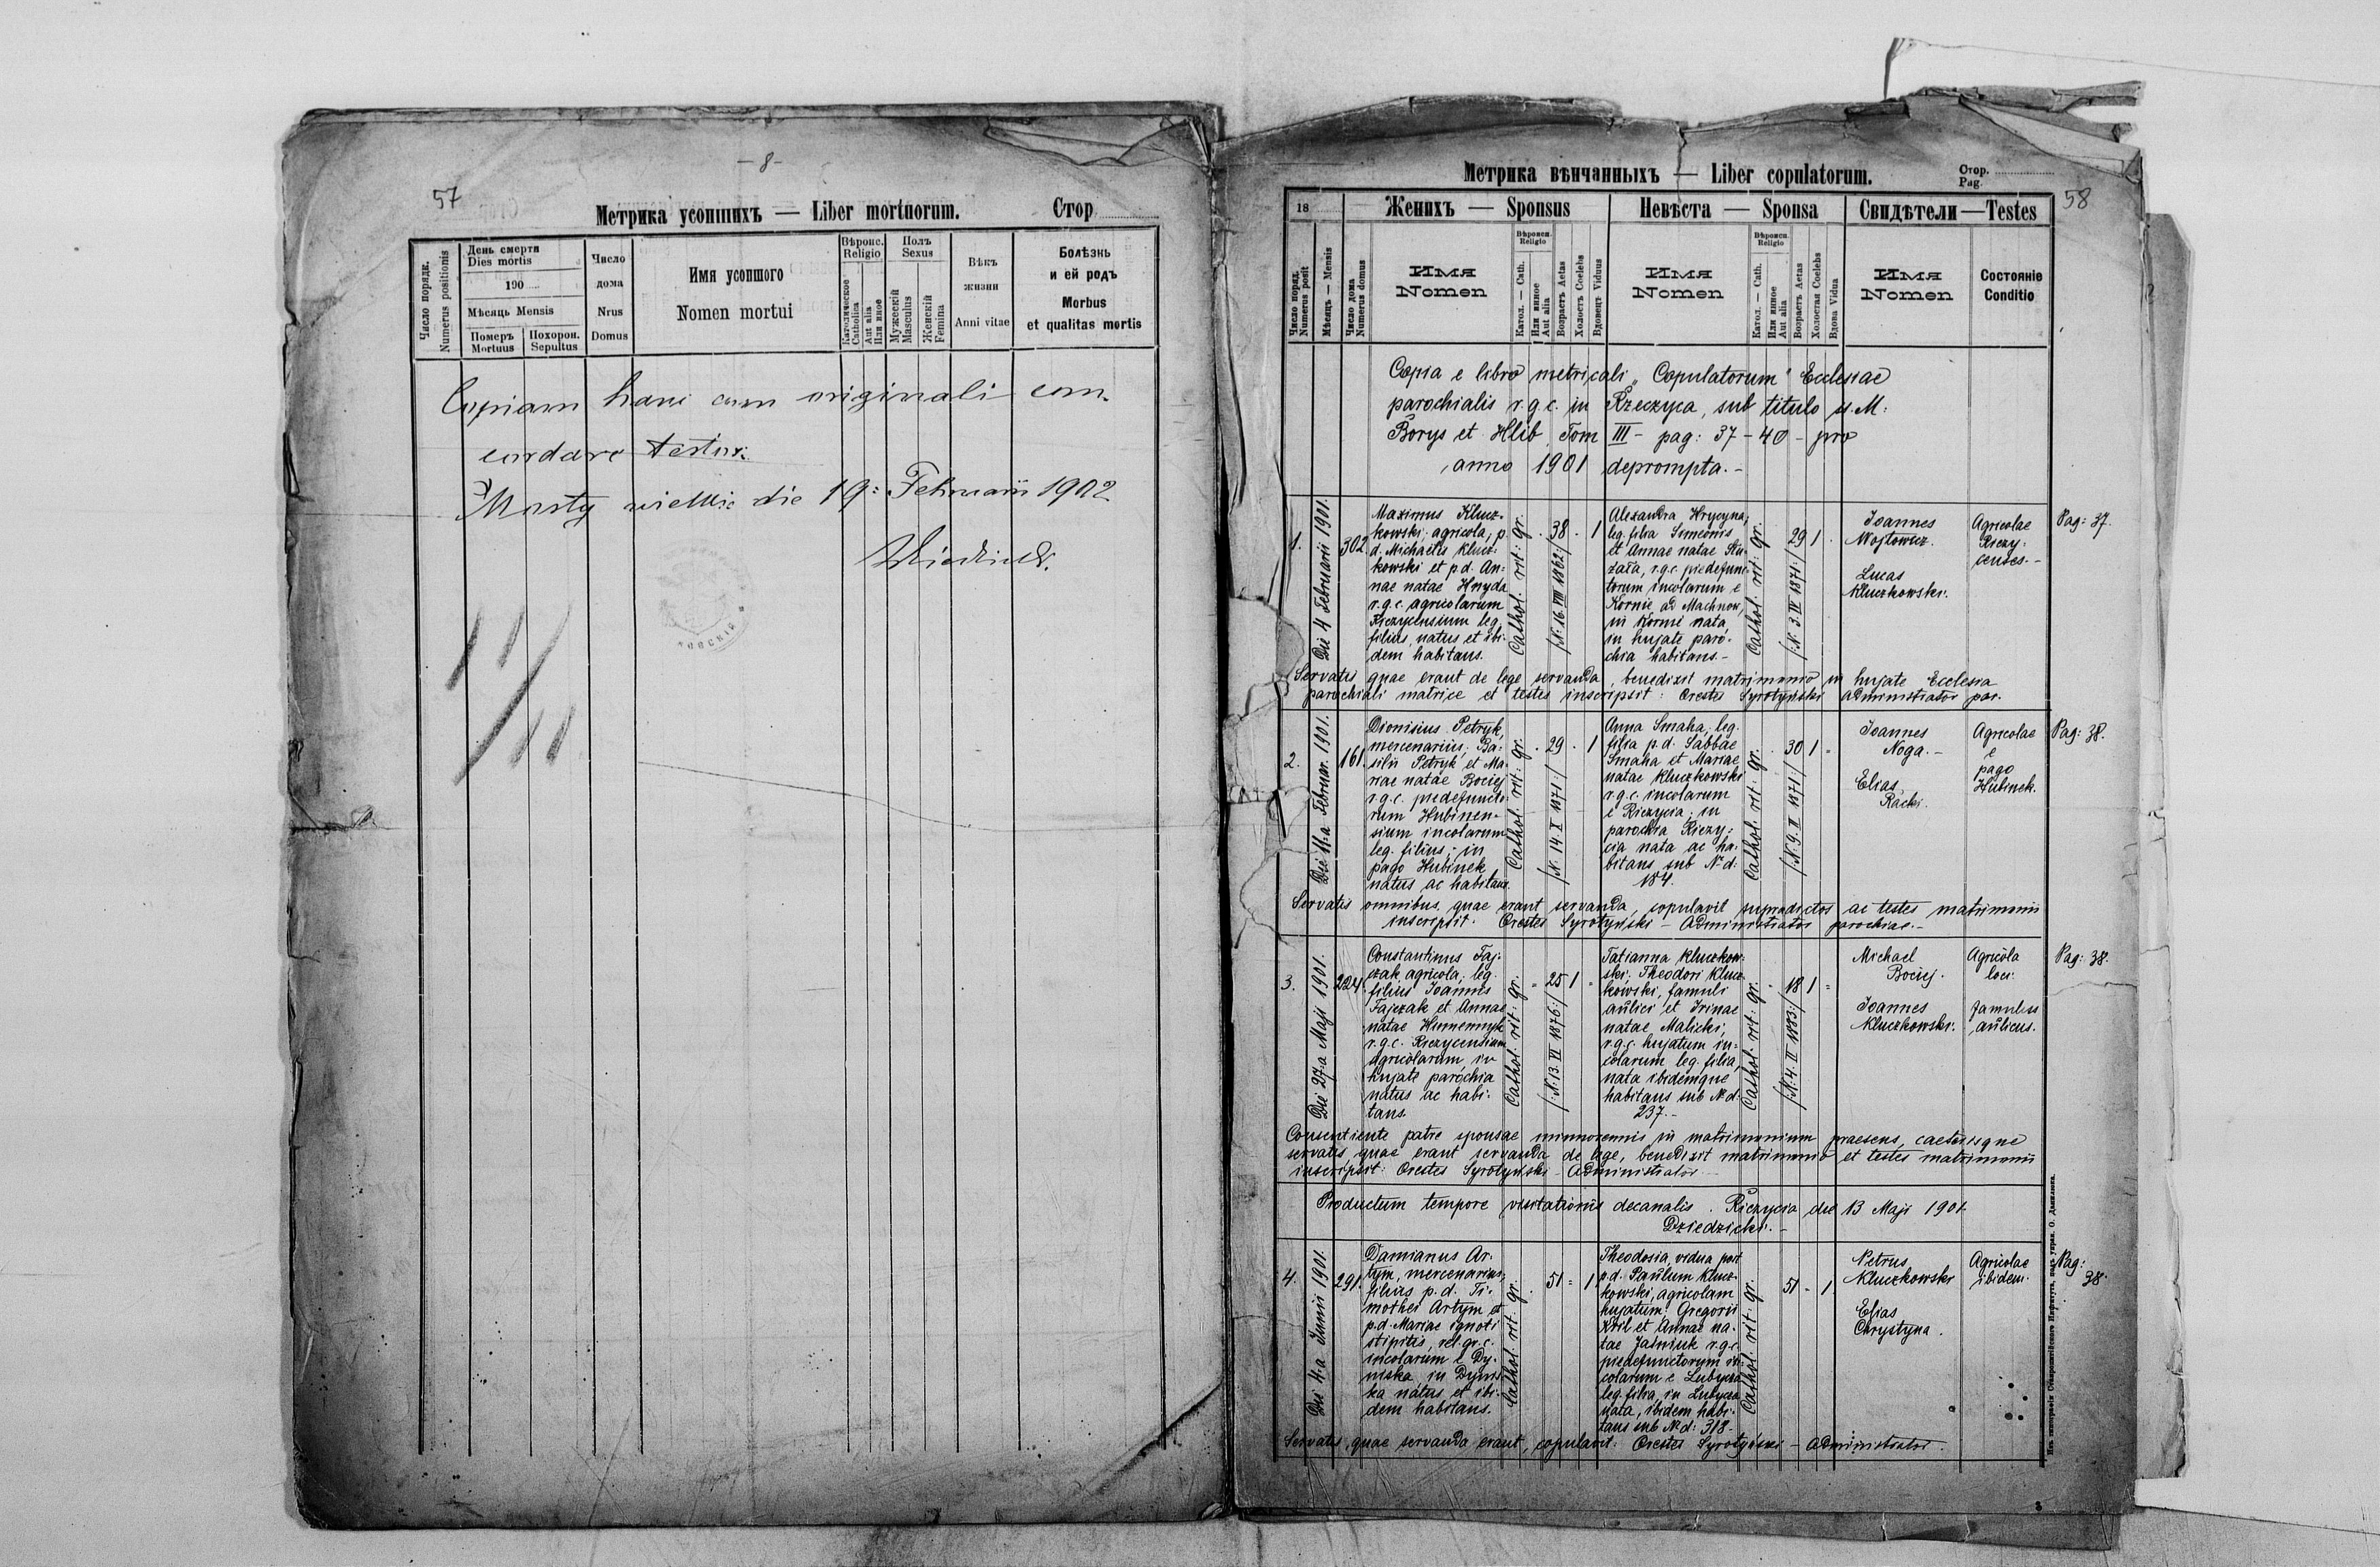 - 8 -
57
Метрика усопшихъ — Liber mortuorum.
Стор
Число порядк.
Numerus positionis
День смерти
Dies mortis
190
Мѣсяць Mensis
Померъ
Mortuus
Похорон.
Sepultus
Число
дома
Nrus
Domus
Имя усопшого
Nomen mortui
Вѣроис.
Religio
Католическое
Catholica
Aut alia
Или иное
Полъ
Sexus
Мужескій
Masculus
Женскій
Femina
Вѣкъ
жизни
Anni vitae
Болѣзнь
и ей родъ
Morbus
et qualitas mortis
Copiam hanc cum originali con-
cordare testor.
Mosty wielkie die 19: Februarii 1902
Метрика вѣнчанныхъ — Liber copulatorum.
Стор.
Pag.
58
18
Женихъ — Sponsus
Невѣста — Sponsa
Свидѣтели — Testes
Число поряд.
Numerus posit
Мѣсяць — Mensis
Число дома
Numerus domus
Имя
Nomen
Вѣроисп.
Religio
Катол. — Cath.
Или инное
Aut alia
Возрастъ Aetas
Холостъ Coelebs
Вдовецъ Viduus
Имя
Nomen
Вѣроисп.
Religio
Катол. — Cath.
Или инное
Aut alia
Возрастъ Aetas
Холостая Coelebs
Вдова Vidua
Имя
Nomen
Состояніе
Conditio
Copia e libro metricali „Copulatorum" Ecclesiae
parochialis r.g.c. in Rzeczyca, sub titulo s. M:
Borys et Hlib Tom III - pag: 37 - 40 - pro
anno 1901 deprompta. -
1.
Die 4 Februarii 1901.
302
Maximus Klucz-
kowski, agricola, p.
d. Michaelis Klucz-
kowski et p.d. An-
nae natae Hnyda
r.g.c. agricolarum
Riczycensium leg.
filius, natus et ibi-
dem habitans.
Cathol. rit: gr.
38
/:N: 16. VIII 1862:/
1
Alexandra Hrycyna,
leg. filia Simeonis
et Annae natae
r.g.c. predefunc-
torum incolarum e
Kornie ad Machnow,
in Kornie nata,
in hujate paro-
chia habitans. -
Cathol. rit: gr.
29
/:N: 3. IV 1871:/
1
Joannes
Wojtowicz.
Lucas
Kluczkowski.
Agricolae
Riczy-
censes. -
Pag: 37.
Servatis quae erant de lege servanda, benedixit matrimonio in hujate Ecclesia
parochiali matrice et testes inscripsit: Orestes Syrotyński Administrator par.
2.
Die 11:a Februar. 1901.
161.
Dionisius Petryk,
mercenarius, Ba-
silii Petryk et Ma-
riae natae Bociej
r.g.c. predefuncto-
rum Hubinen-
sium incolarum
leg. filius; in
pago Hubinek
natus ac habitans.
Cathol. rit: gr.
29
/:N: 14. X 1871:/
1
Anna Smaha, leg.
filia p.d. Sabbae
Smaha et Mariae
natae Kluczkowski
r.g.c. incolarum
e Riczycia, in
parochia Riczy-
cia nata ac ha-
bitans sub N: d:
184.
Cathol. rit: gr.
30
/:N: 9. II 1871:/
1
Joannes
Noga. -
Elias
Racki.
Agricolae
e
pago
Hubinek.
Pag: 38.
Servatis omnibus quae erant servanda, copulavit supradictos ac testes matrimonii
inscripsit: Orestes Syrotyński - Administrator parochiae. -
3.
Die 27:a Maji 1901.
224.
Constantinus Faj-
czak agricola, leg.
filius Joannis
Fajczak et Annae
natae Humennyk
r.g.c. Riczycensium
agricolarum, in
hujate parochia
natus ac habi-
tans.
Cathol. rit: gr.
25
/:N: 13. VI 1876:/
1
Tatianna Kluczkow-
ski, Theodori Klucz-
kowski, famuli
aulici et Irinae
natae Malicki,
r.g.c. hujatum in-
colarum leg. filia,
nata ibidemque
habitans sub N: d:
237. -
Cathol. rit: gr.
18
/:N: 4. II 1883:/
1
Michael
Bociej.
Joannes
Kluczkowski.
Agricola
loci.
famulus
aulicus.
Pag: 38.
Consentiente patre sponsae minorennis in matrimonium praesens, caeterisque
servatis, quae erant servanda de lege, benedixit matrimonio et testes matrimonii
inscripsit: Orestes Syrotyński - Administrator. -
Productum tempore visitationis decanalis. Riczycia die 13 Maji 1901
Dziedzicki. -
4.
Die 4:a Junii 1901.
291.
Damianus Ar-
tym, mercenarius,
filius p.d. Ti-
mothei Artym et
p.d. Mariae ignoti
stipitis, rel. gr. c.
incolarum e Dy-
niska, in Dynis-
ka natus et ibi-
dem habitans.
Cathol. rit: gr.
51
1
Theodosia, vidua post
p.d. Paulum Klucz-
kowski, agricolam
hujatum, Gregorii
Kril et Annae na-
tae Jasniuk r.g.c.
predefunctorum in-
colarum e Lubycza
leg. filia, in Lubycza
nata, ibidem habi-
tans sub N: d: 318 -
Cathol. rit: gr.
51
1
Petrus
Kluczkowski
Elias
Chrystyna.
Agricolae
ibidem.
Pag:
38.
Servatis, quae servanda erant, copulavit: Orestes Syrotyński - Administrator.
Изъ типографіи Ставропигійского Института, подъ управ. О. Данилюка.
3